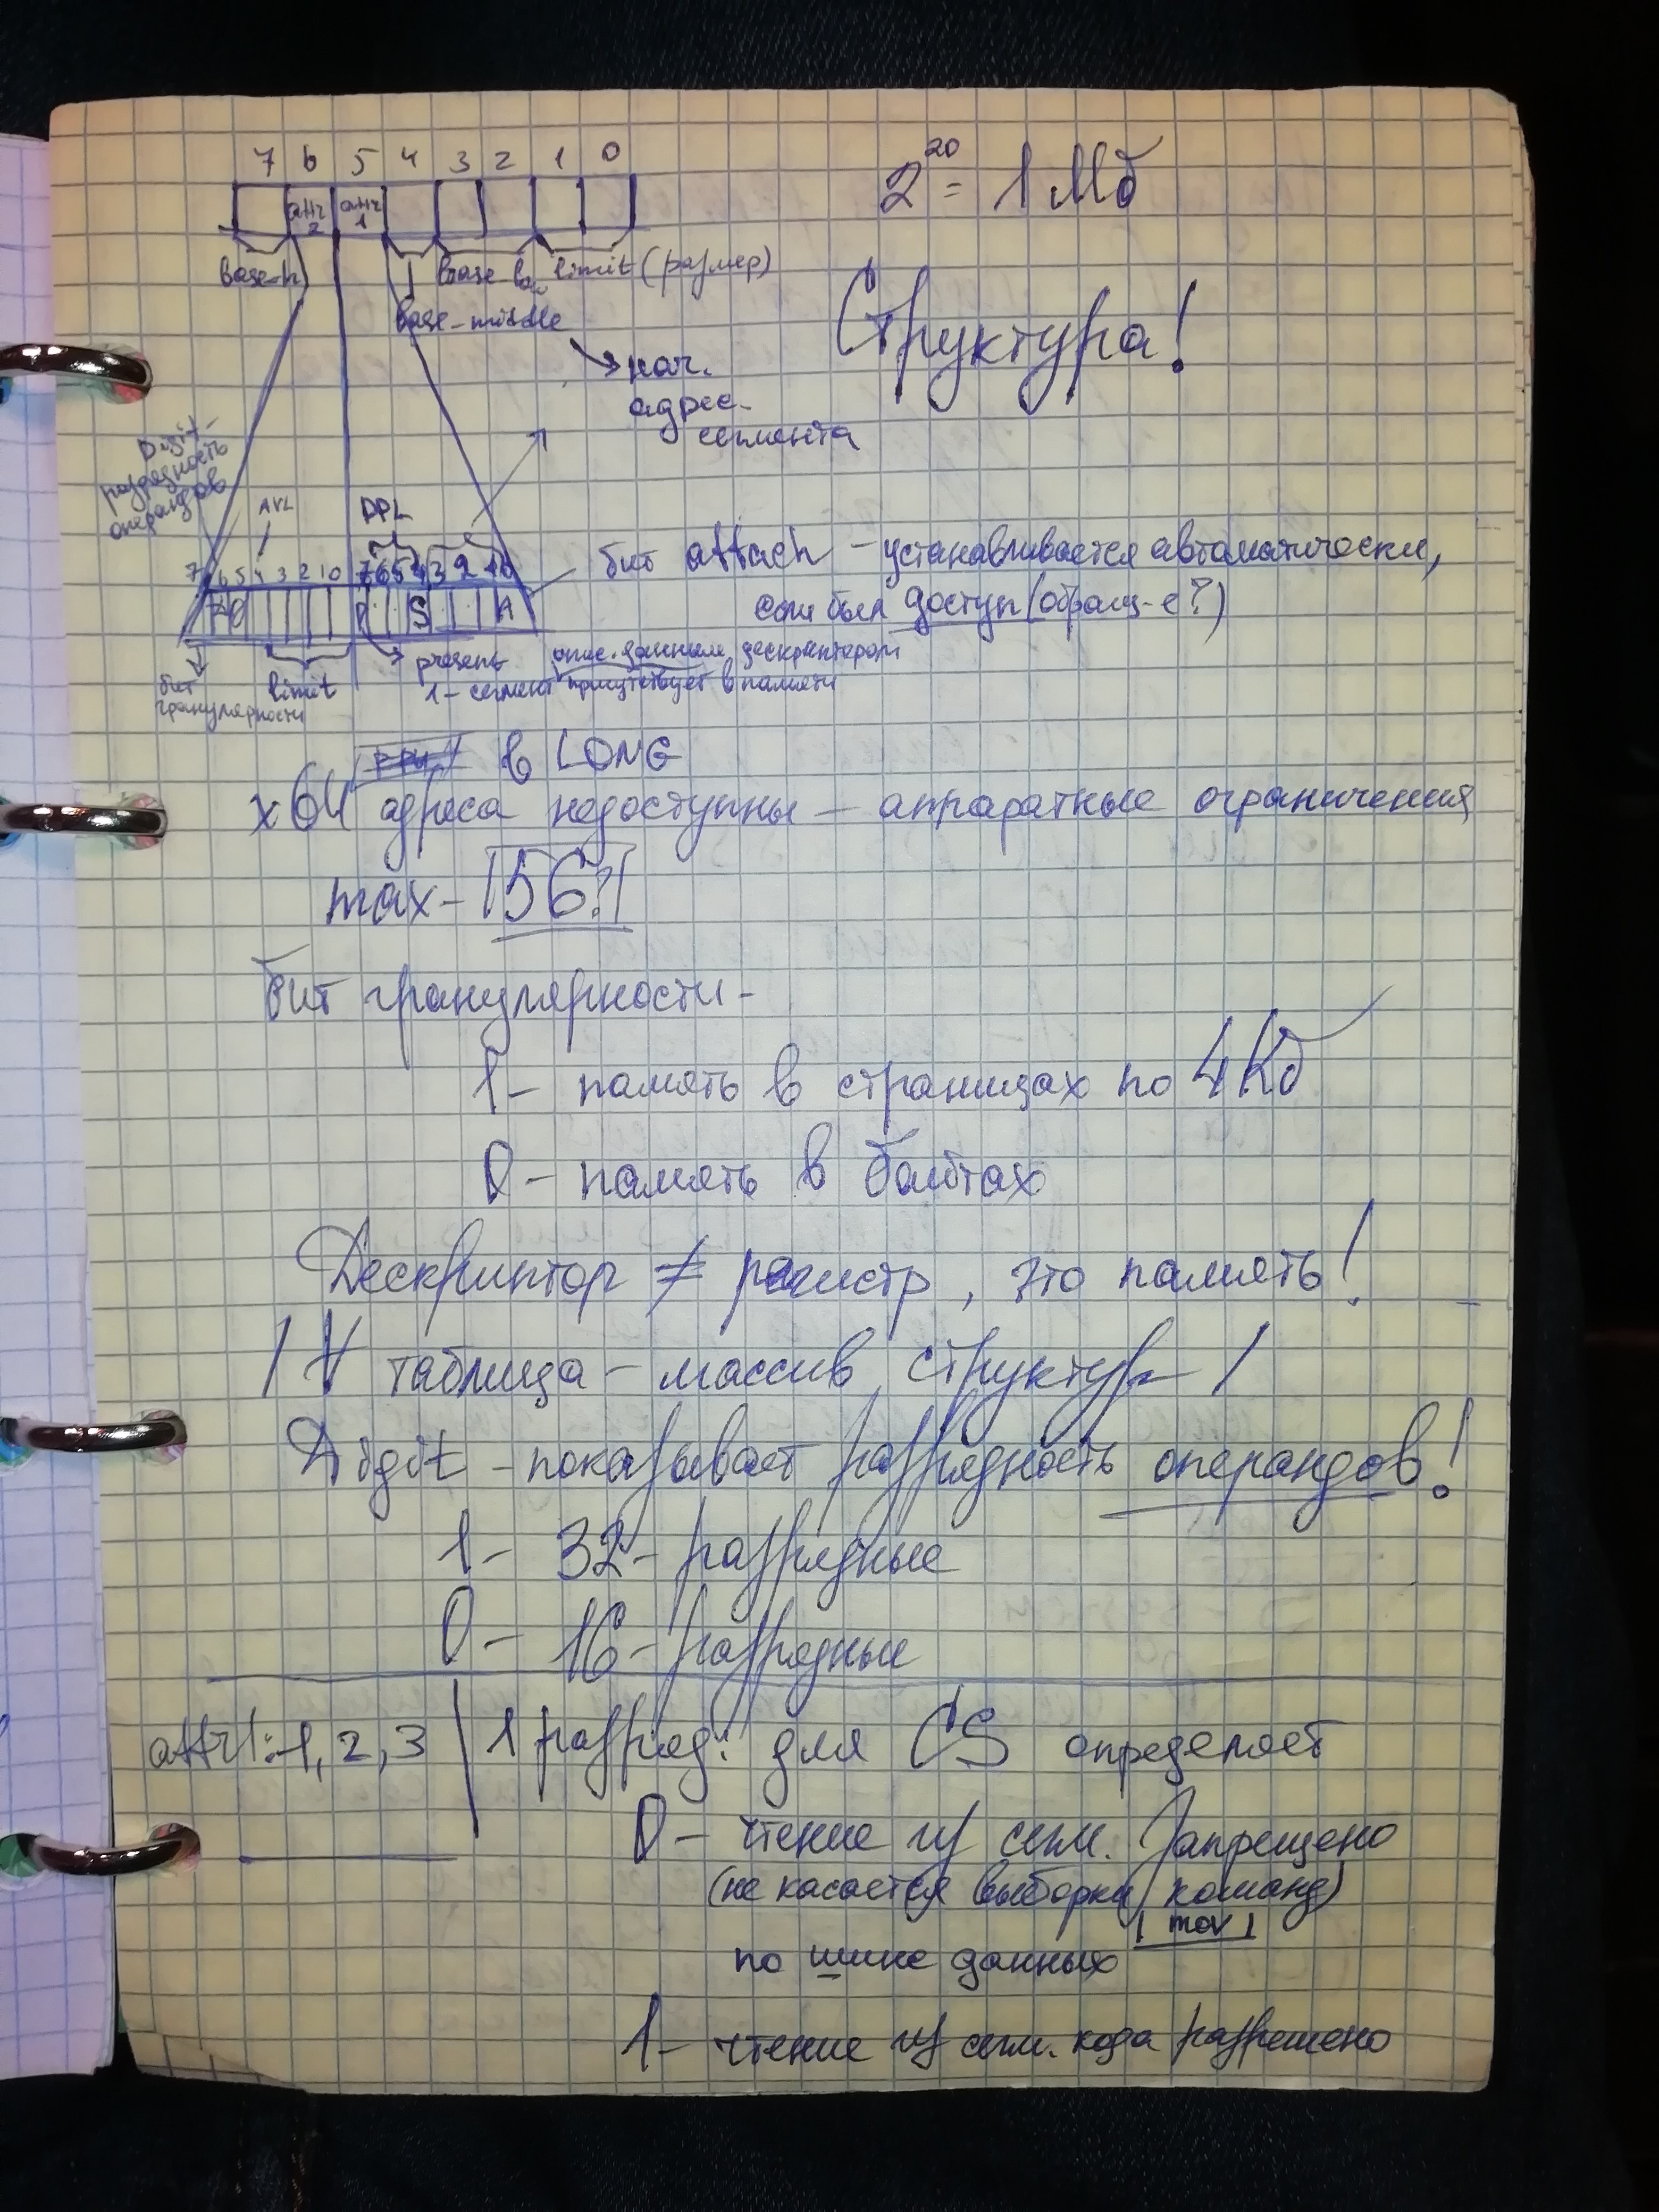 7 6 5 4 3 2 1 0
2²⁰ = 1 Мб
attr 2 attr 1
base-h base-low limit (размер)
base-middle
Структура!
нач.
адрес.
сегмента
Digit-
разрядность
операндов
AVL DPL
7 6 5 4 3 2 1 0 7 6 5 4 3 2 1 0
бит attach - устанавливается автоматически,
если был доступ (обращ-е?)
D P S A
present опис. данным дескриптором
1 - сегмент присутствует в памяти
бит
гранулярности
limit
в LONG
x64 адреса недоступны - аппаратные ограничения
max - |56?|
бит гранулярности -
1 - память в страницах по 4Кб
0 - память в байтах
Дескриптор ≠ регистр, это память!
/ ∀ таблица - массив структур /
Digit - показывает разрядность операндов!
1 - 32-разрядные
0 - 16-разрядные
attr1: 1, 2, 3 | 1 разряд: для CS определяет
0 - чтение из сегм. запрещено
(не касается выборки команд)
| mov |
по шине данных
1 - чтение из сегм. кода разрешено